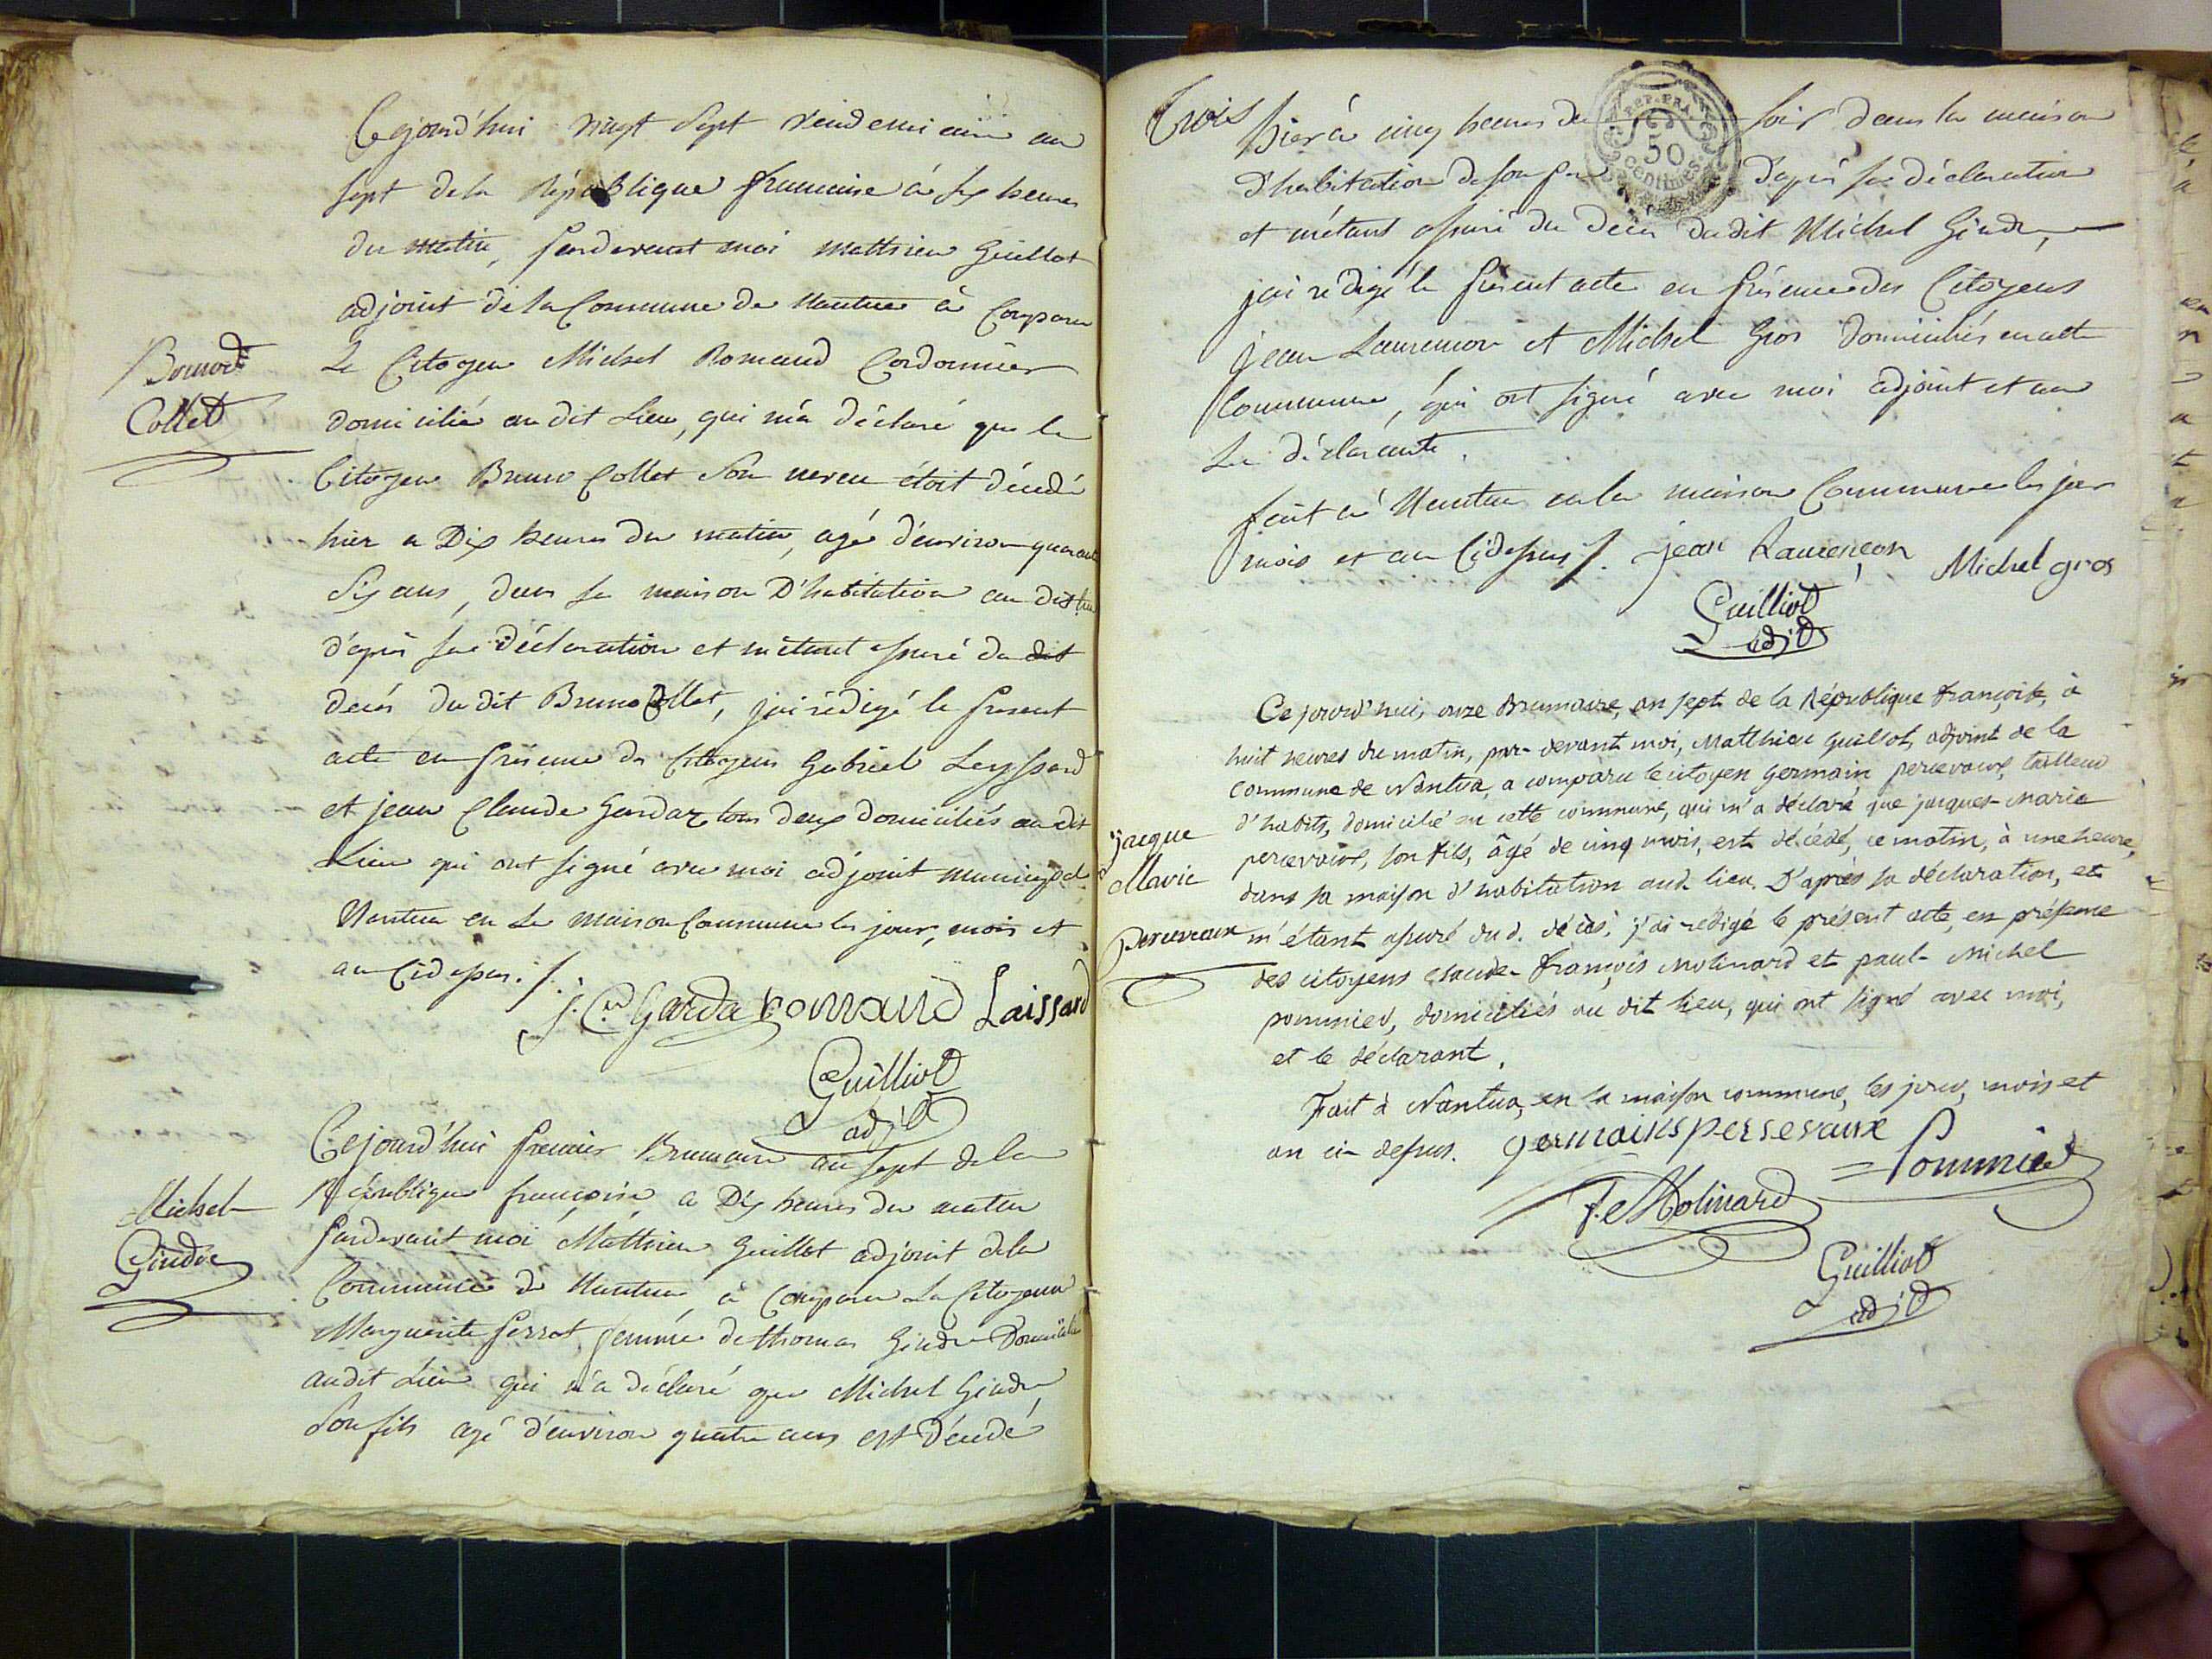 Cejourd'hui vingt Sept vendemiaire an
sept de la République francaise à six heures
du matin, pardevant moi Matthieu Guillot
adjoint de la Commune de Nantua à Comparu
Le Citoyen Michel Romand Cordonnier
domicilié au dit Lieu, qui m'a déclaré que le
Bruno
Collet
Citoyen Bruno Collet Son neveu étoit décédé
hier a Dix heures du matin, agé d'environ quarante
Six ans, dans sa maison D'habitation au dit lieu
d'après sa déclaration et m'étant assuré du dit
decés du dit Bruno Collet, j'ai rédigé le present
acte en présence des Citoyens Gabriel Leyssard
et jean Claude Gardaz tous deux domiciliés au dit
Lieu qui ont signé avec moi adjoint municipal
Nantua en La maison Commune les jour, mois et
an Cidessus ./.
J. C. Garda romand Laissard
Guilliot
adj.t
Cejourd'hui premier Brumaire an sept de la
République françoise a Dix heures du matin
Michel
Gindre
pardevant moi Matthieu Guillot adjoint de la
Commune de Nantua, à Comparu La Citoyenne
Marguerite perrot femme de thomas Gindre Domiciliée
audit Lieu qui m'a déclaré que Michel Gindre
Son fils agé d'environ quatre ans est décédé
Trois
REP. FRA.
50
centimes.
hier à cinq heures du soir dans la maison
d'habitation de son père d'après sa déclaration
et m'étant assuré du decés dudit Michel Gindre,
j'ai rédigé le présent acte en présence des Citoyens
jean Laurençon et Michel Gros domiciliés en cette
Commune, qui ont signé avec moi adjoint et non
La déclarante.
fait à Nantua en la maison Commune les jour
mois et an Cidessus ./. jean Laurençon
Michel gros
Guilliot
adj.t
Ce jourd'hui, onze Brumaire, an sept de la République françoise, à
huit heures du matin, par-devant moi, Matthieu Guillot, adjoint de la
commune de Nantua, a comparu le citoyen Germain percevaux, tailleur
d'habits, domicilié en cette commune, qui m'a déclaré que jacques-Marie
jacque
Marie
percevaux
percevaux, son fils, âgé de cinq mois, est décédé, ce matin, à une heure,
dans sa maison d'habitation aud. lieu. D'après sa déclaration, et
m'étant assuré dud. décès, j'ai rédigé le présent acte, en présence
des citoyens claude-françois Molinard et paul-Michel
pommier, domiciliés au dit lieu, qui ont signé avec moi,
et le déclarant.
Fait à Nantua, en la maison commune, les jour, mois et
an ci-dessus. germains persevaux
Pommier
f. Molinard
Guilliot
adj.t